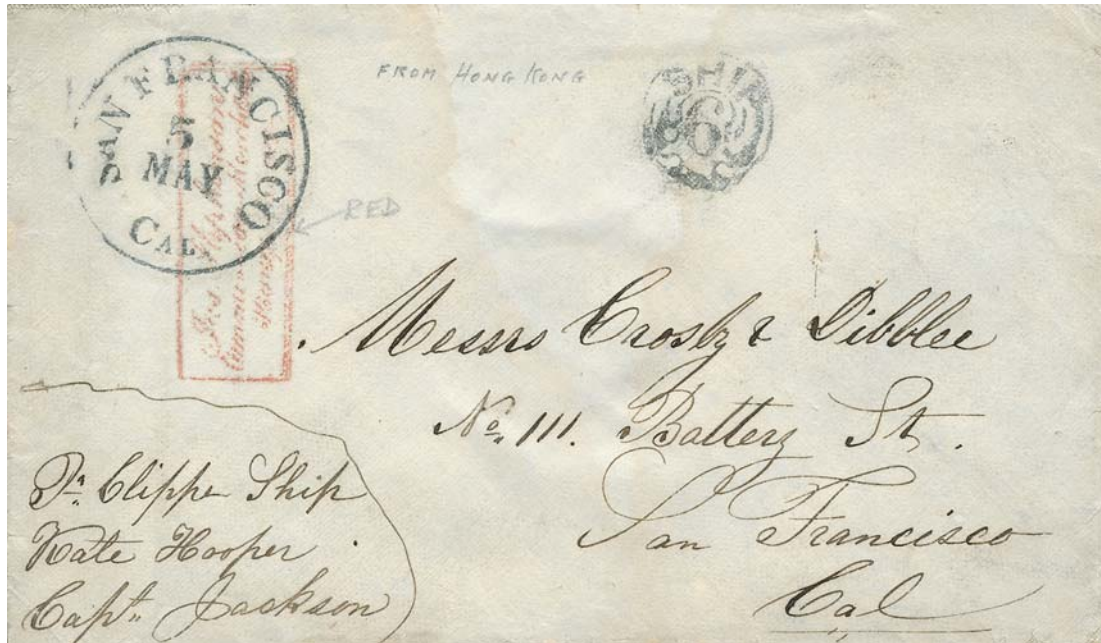 SAN FRANCISCO
5
MAY
CAL.
FROM HONG KONG
SHIP
6
RED
Messrs Crosby & Dibblee
No. 111. Battery St.
San Francisco
Cal
Pr. Clipper Ship
Kate Hooper
Capt. Jackson